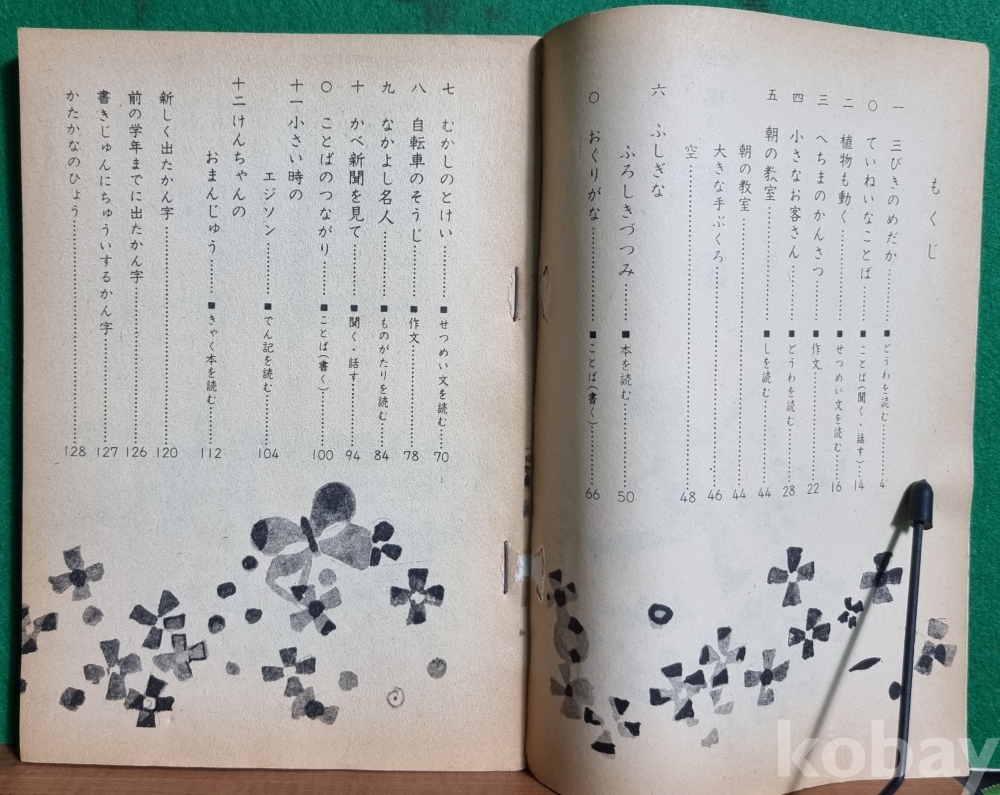 もくじ
一 三びきのめだか……■どうわを読む……4
〇 ていねいなことば……■ことば(聞く・話す)……14
二 植物も動く……■せつめい文を読む……16
三 へちまのかんさつ……■作文……22
四 小さなお客さん……■どうわを読む……28
五 朝の教室……■しを読む……44
朝の教室……44
大きな手ぶくろ……46
空……48
六 ふしぎな
ふろしきづつみ……■本を読む……50
〇 おくりがな……■ことば(書く)……66
七 むかしのとけい……■せつめい文を読む……70
八 自転車のそうじ……■作文……78
九 なかよし名人……■ものがたりを読む……84
十 かべ新聞を見て……■聞く・話す……94
〇 ことばのつながり……■ことば(書く)……100
十一 小さい時の
エジソン……■でん記を読む……104
十二 けんちゃんの
おまんじゅう……■きゃく本を読む……112
新しく出たかん字……120
前の学年までに出たかん字……126
書きじゅんにちゅういするかん字……127
かたかなのひょう……128
kobay